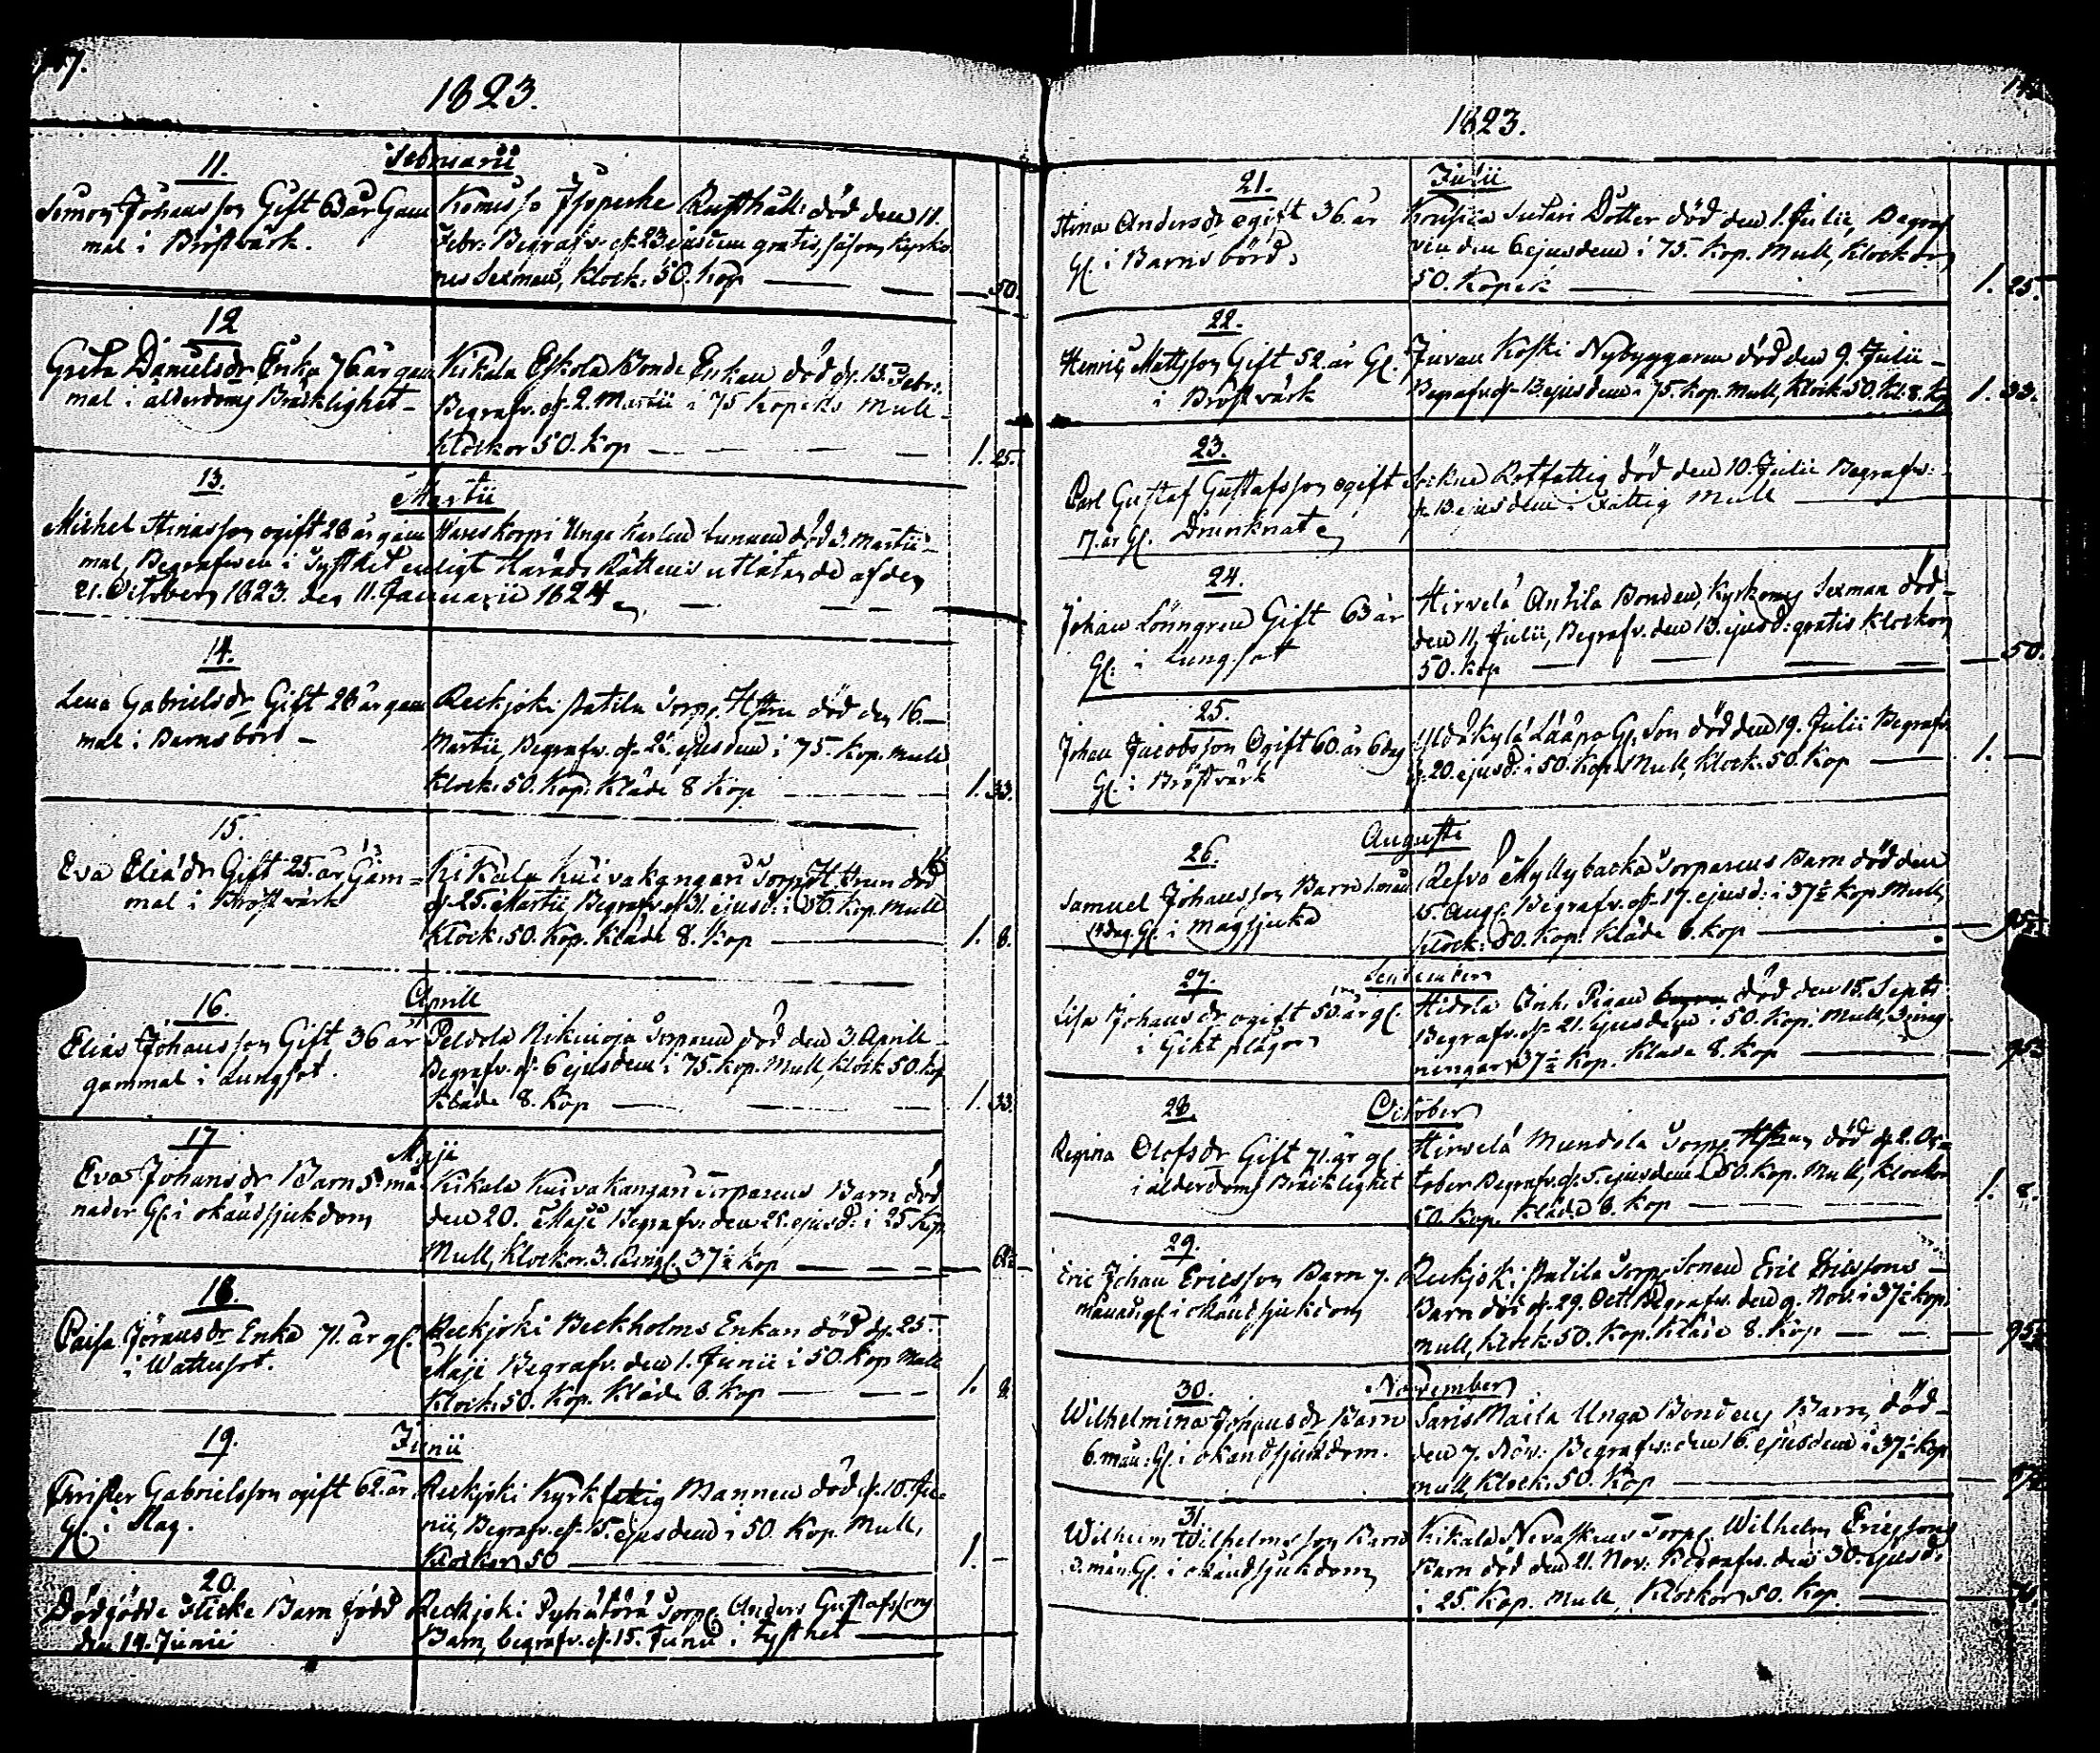 1823.
Februarii
11.
Simon Johansson Gift 63 år Gam
mal i Bröstvärk.
död den 11.
Febr: Begrafv. d. 23 ejusdem gratis, såsom Kyrko
nes Sexman, Klock: 50. Kop
50.
12
Greta Danielsdr Enka 76 år gam
mal i ålderdoms Bräcklighet
Kikala Eskola Bonde Enkan död d. 13. Febr:
Begrafv. d. 2. Martii i 75 Kopeks Mull
Klockor 50. Kop
1. 25.
13.
Martii
Michel ogift 28 år gam
mal, Begrafven i Tysthet enligt Härads Rättens utslag af den
21. October 1823. den 11. Januarii 1824
död 3. Martii
14.
Lena Gabrielsdr Gift 28 år gam
mal i Barnsbörd
Reckjoki Patila Torp. Hstru död den 16.
Martii, Begrafv. d. ejusdem i 75. Kop. Mull
Klock: 50. Kop. Kläde 8 Kop
1. 33.
15.
Eva Eliædr Gift 25. år Gam=
mal i Bröstvärk
Kikala Kuivakangas Torp. Hstrun död
d. 25. Martii Begrafv. d. 31. ejusd: i 50. Kop. Mull
Klock. 50. Kop. Kläde 8. Kop
1. 8.
16.
Aprill
Elias Johansson Gift 36 år
gammal i Lungsot.
Peldola död den 3. Aprill
Begrafv. d. 6 ejusdem i 75. Kop. Mull, Klock 50. Kop
Kläde 8. Kop
1. 33.
17
Maji
Eva Johansdr Barn 5. må=
nader Gl. i okänd sjukdom
Kikala Kuivakangas Torparens Barn död
den 20. Maji Begrafv. den 25. ejusd: i 25 Kop
Mull, Klockor 3. Ring. 37½ Kop
62½
18.
Caisa Jöransdr Enka 71. år gl.
i Wattusot.
Reckjoki Beckholms Enkan död d. 25.
Maji Begrafv. den 1. Junii i 50. Kop Mull
Klock. 50. Kop. Kläde 8. Kop
1. 8.
19.
Junii
Christer Gabrielsson ogift 62. år
Gl. i Slag.
Reckjoki Kyrkfattig Mannen död d. 10. Ju=
nii, Begrafv. d. 15. ejusdem i 50. Kop. Mull,
Klockor 50
1. -
20.
Dödfödde Flicke Barn född
den 14. Junii
Reckjoki Torp. Anders Gustafssons
Barn, begrafv. d. 15. Junii i tysthet
1823.
21.
Julii
Stina Andersdr ogift 36. år
Gl. i Barnsbörd.
Dotter död den 1. Julii, Begraf
ven den 6 ejusdem i 75. Kop. Mull, Klockor
50. Kopek
1. 25.
22.
Henric Mattsson Gift 52. år Gl.
i Bröstvärk
Juvan Koski Nybyggaren död den 9. Julii
Begrafv. d. 13. ejusdem i 75. Kop. Mull, Klock. 50. Kl. 8. Kop
1. 33.
23.
Carl Gustaf Gustafsson ogift
17. år Gl. Drunknat
Sockne Rotfattig död den 10. Julii Begrafv.
d. 13. ejusdem i Fattig Mull
24.
Johan Lönngren Gift 63 år
Gl. i Lungsot
Hirvelä Anttila Bonden, Kyrkones Sexman död
den 11. Julii, Begrafv. den 13. ejusd: gratis Klockor
50. Kop
50.
25.
Johan Jacobsson Ogift 60. år 6 dag
Gl. i Bröstvärk
Son död den 19. Julii Begrafv.
d. 20. ejusd: i 50. Kop. Mull, Klock. 50. Kop
1. -
26.
Augusti
Samuel Johansson Barn
14 dag. Gl. i Magsjuka
Refvo Myllybacka Torparens Barn död den
15. Aug. Begrafv. d. 17. ejusd: i 37½ Kop Mull,
Klock. 50. Kop. Kläde 8. Kop
95½
27.
September
Lisa Johansdr ogift 50. år gl.
i Gikt plågor
Pigan död den 15. Sept:
Begrafv. d. 21. Ejusdem i 50. Kop. Mull, 3 ring
ningar 37½ Kop. Kläde 8. Kop
95½
28.
October
Regina Olofsdr Gift 71. år gl
i ålderdoms Bräcklighet
Hirvelä Mundola Torp. Hstrun död d. 2. Oc=
tober Begrafv. d. 5. ejusdem i 50. Kop. Mull, Klockor
50. Kop. Kläde 8. Kop
1. 8.
29.
Eric Johan Ericsson Barn 7.
månad. gl i okänd sjukdom
Reckjoki Patila Torp. Sonen Eric Ericssons
Barn död d. 29. Oct: Begrafv. den 9. Nov. i 37½ Kop.
Mull, Klock. 50. Kop. Kläde 8. Kop
95½
30.
November
Wilhelmina Johansdr Barn
6. mån: Gl. i okänd sjukdom.
Saris Maila Unga Bondens Barn, död
den 7. Nov: Begrafv: den 16. ejusdem i 37½ Kop
Mull, Klock. 50. Kop
31.
Wilhelm Wilhelmsson Barn
3. mån Gl. i okänd sjukdom
Kikala Torp. Wilhelm Ericssons
Barn död den 21. Nov. Begrafv. den 30. ejusd:
i 25. Kop. Mull, Klockor 50. Kop.